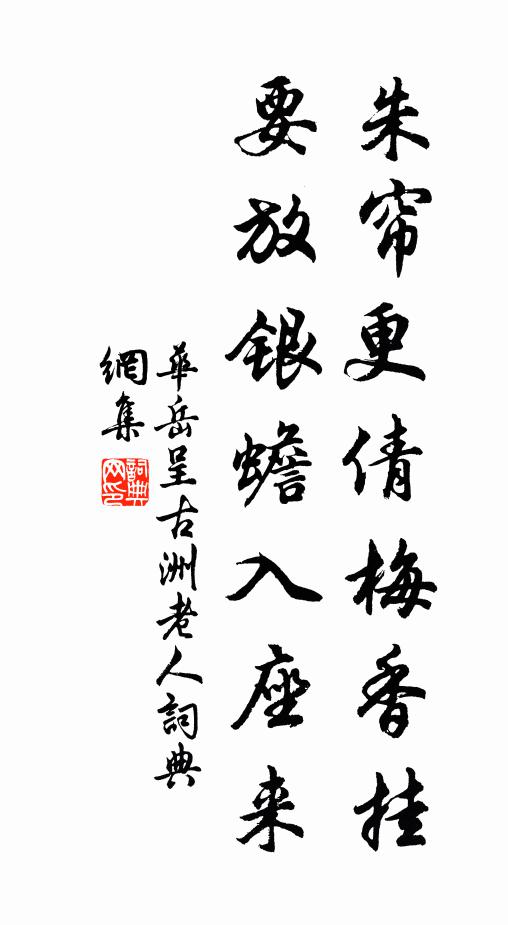 朱帘更倩梅香挂
要放银蟾入座来
華岳呈古洲老人詞典
網集
詞典
网印